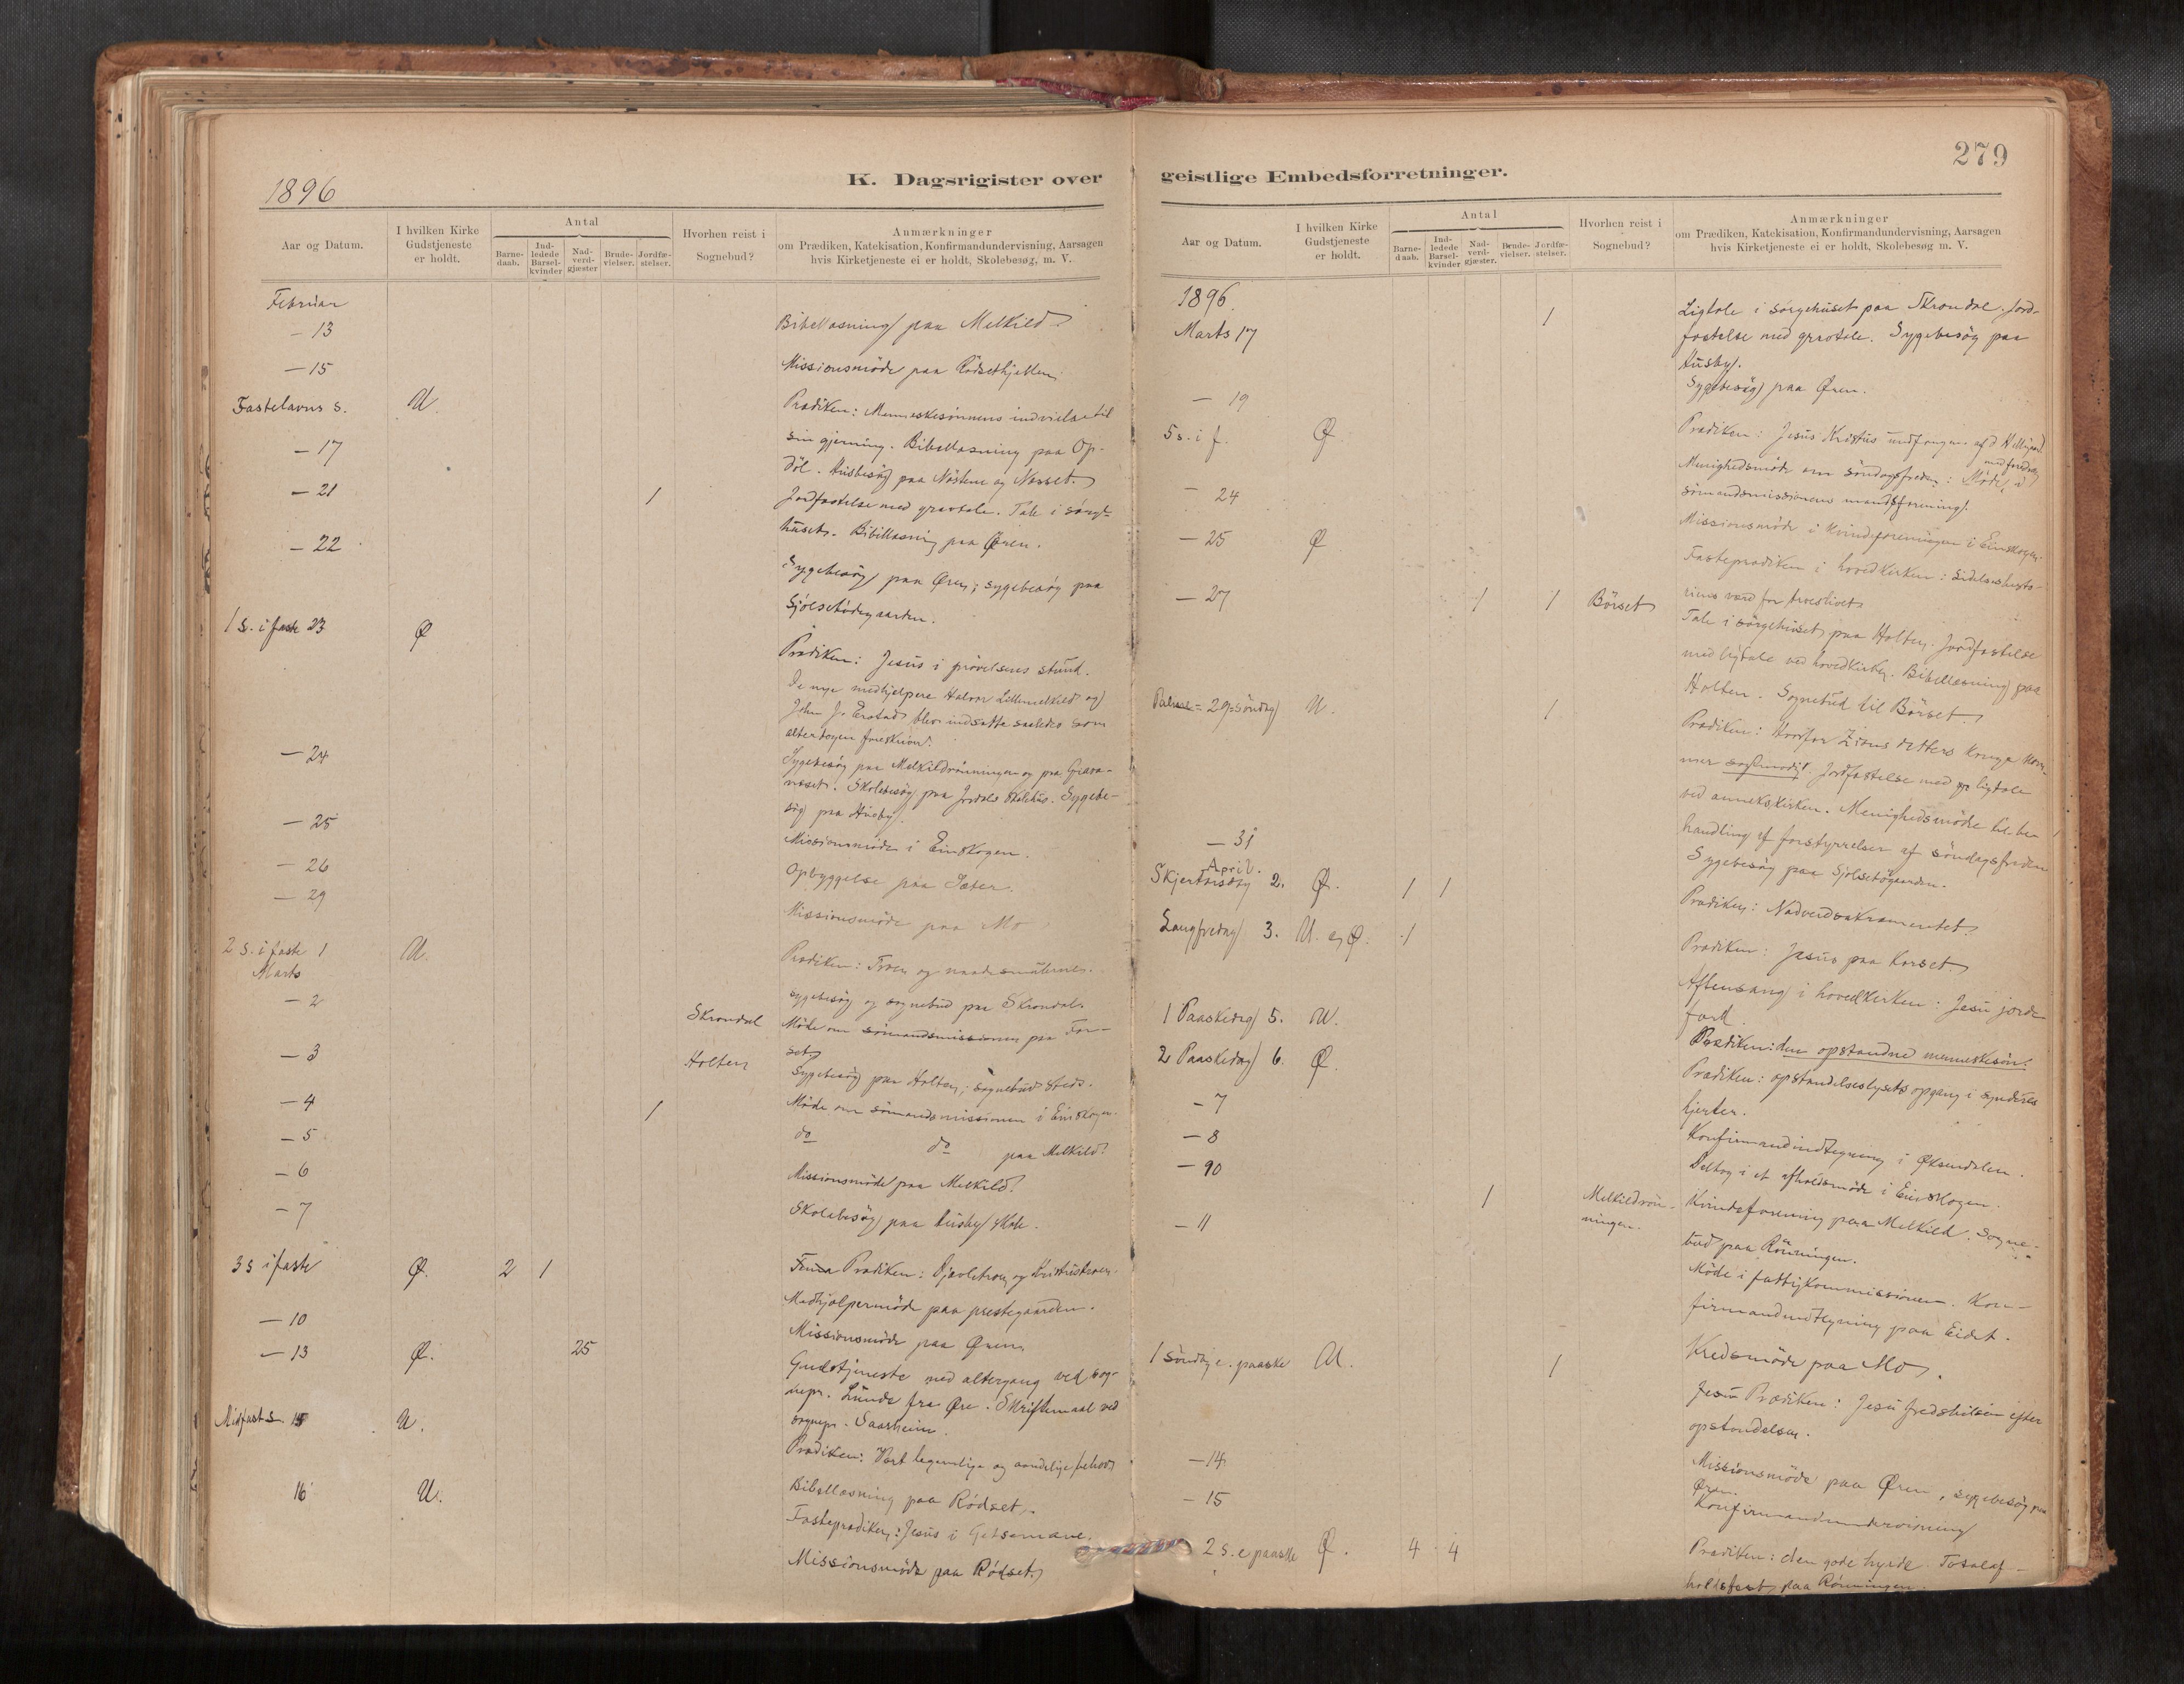 1896
K. Dagsrigister over
Aar og Datum.
I hvilken Kirke Gudstjeneste er holdt.
Antal
Barne-daab.
Ind-ledede Barsel-kvinder
Nad-verd-gjæster
Brude-vielser.
Jordfæ-stelser.
Hvorhen reist i Sognebud?
Anmærkninger
om Prædiken, Katekisation, Konfirmandundervisning, Aarsagen
hvis Kirketjeneste ei er holdt, Skolebesøg, m. V.
Februar
— 13 Bibellæsning paa Melkild
— 15 Missionsmöde paa Rödsethjellen.
Fastelavns s. U. Prædiken: Menneskesönnens indvielse til
sin gjerning. Bibellæsning paa Op-
— 17
döl. Husbesög paa Nöstene og Næsset.
— 21 1 Jordfæstelse med gravtale. Tale i sörge-
huset. Bibellæsning paa Øren.
— 22
Sygebesög paa Øren; sygebesög paa
Sjölsetödegaarden.
1 s. i faste 23 Ø
Prædiken: Jesus i prövelsens stund.
De nye medhjelpere Halvor Lillemelkild og
John J. Erstad blev indsatte saaledes som
alterbogen foreskriver.
— 24
Sygebesög paa Melkildrönningen og paa
næset. Skolebesög paa Jordals skolehus. Sygebe-
sög paa Husby.
— 25
Missionsmöde i Einskogen.
— 26
Opbyggelse paa Sæter.
— 29
Missionsmöde paa Mo
2 s. i faste 1 U.
Marts
Prædiken: Troen og naadesmidlerne.
— 2 Sygebesög og sognebud paa Skrondal.
Skrondal
Möde om sömandsmissionen paa For-
set
— 3 Holten
Sygebesög paa Holten; sognebud steds.
— 4 1 Möde om sömandsmissionen i Einskogen.
— 5 do do paa Melkild
— 6 Missionsmöde paa Melkild.
— 7 Skolebesög paa Husby skole.
3 s i faste Ø. 2 1 Prædiken: Djævletroen og Kristustroen.
Medhjælpermöde paa prestegaarden.
— 10
Missionsmöde paa Øren
— 13 Ø. 25
Gudstjeneste med altergang ved sog-
nepr. Lunde fra Øre. Skriftemaal ved
sognepr. Saarheim.
Midfasts. 15 U.
Prædiken: Vort legemlige og aandelige behov
Bibellæsning paa Rödset.
16 U.
Fasteprædiken: Jesus i Getsemane.
Missionsmöde paa Rödset.
279
geistlige Embedsforretninger.
Aar og Datum.
I hvilken Kirke Gudstjeneste er holdt.
Antal
Barne-daab.
Ind-ledede Barsel-kvinder
Nad-verd-gjæster.
Brude-vielser.
Jordfæ-stelser.
Hvorhen reist i Sognebud?
Anmærkninger
om Prædiken, Katekisation, Konfirmandundervisning, Aarsagen
hvis Kirketjeneste ei er holdt, Skolebesøg m. V.
1896.
Marts 17 1 Ligtale i sörgehuset paa Skrondal. Jord-
fæstelse med gravtale. Sygebesög paa
Husby.
— 19 Sygebesög paa Øren.
5 s. i f. Ø Prædiken: Jesus Kristus undfangen af d Helligaand
med foredrag
Menighedsmöde om söndagsfreden: Möde i
— 24
sömandsmissionens mandsforening.
— 25 Ø Missionsmöde i kvindeforeningen i Einskogen.
Fasteprædiken i hovedkirken: Lidelseshisto-
riens værd for troeslivet.
— 27 1 1 Börset
Tale i sörgehuset paa Holten. Jordfæstelse
med ligtale ved hovedkirken. Bibellæsning paa
Holten. Sognebud til Börset.
Palme- 29 söndag U. 1
Prædiken: Hvorfor Zions datters konge kom-
mer sagtmodig. Jordfæstelse med ligtale
ved annekskirken. Menighedsmöde til be-
handling af forstyrrelser af söndagsfreden
— 31
Sygebesög paa Sjölsetögaarden.
April.
Skjertorsdag 2. Ø. 1 1
Prædiken: Nadverdsakramentet.
Langfredag 3. U. og Ø. 1
Prædiken: Jesus paa korset.
Aftensang i hovedkirken: Jesu jorde
færd.
1 Paaskedag 5. U.
Prædiken: den opstandne menneskesön.
2 Paaskedag 6. Ø.
Prædiken: opstandelseslysets opgang i synderes
hjerter.
— 7
Konfirmandindtegning i Øksendalen.
— 8
Deltog i et afholdsmöde i Einskogen.
— 90
1 Melkildrön-
ningen. Kvindeforening paa Melkild. Sogne-
bud paa Rönningen.
— 11
Möde i fattigkommissionen. Kon-
firmandindtegning paa Eidet.
Kredsmöde paa Mo.
1 söndag e. paaske U. 1
Prædiken: Jesu fredshilsen efter
opstandelsen.
— 14
Missionsmöde paa Øren, sygebesög paa
Øren.
— 15
Konfirmandundervisning
2 s. e paaske Ø. 4 4
Prædiken: den gode hyrde. Totalaf-
holdsfest paa Rönningen.